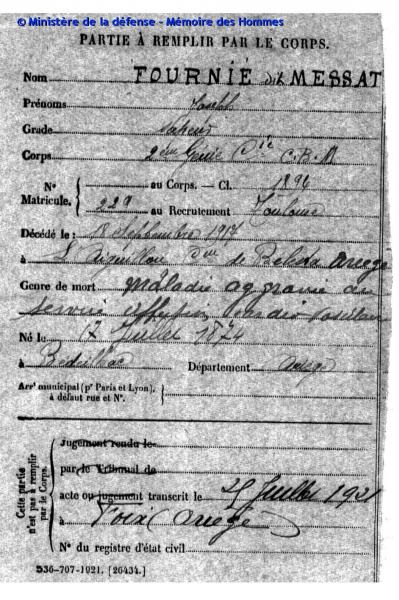 © Ministère de la défense - Mémoire des Hommes
PARTIE À REMPLIR PAR LE CORPS.
Nom FOURNIÉ dit MESSAT
Prénoms Joseph
Grade Sapeur
Corps 2ème Génie Cie C.B.M
N° Matricule. { au Corps. — Cl. 1894
229 au Recrutement Toulouse
Décédé le : 8 septembre 1917
à L'Aiguillon de Belesta Ariège
Genre de mort maladie aggravée au
service affection
Né le 12 Juillet 1874
à Bédeilhac Département Ariège
Arrt municipal (pr Paris et Lyon), à défaut rue et N°. {
Cette partie n'est pas à remplir par le Corps.
Jugement rendu le
par le Tribunal de
acte ou jugement transcrit le 25 Juillet 1921
à Foix Ariège
N° du registre d'état civil
536-707-1921. [26434.]